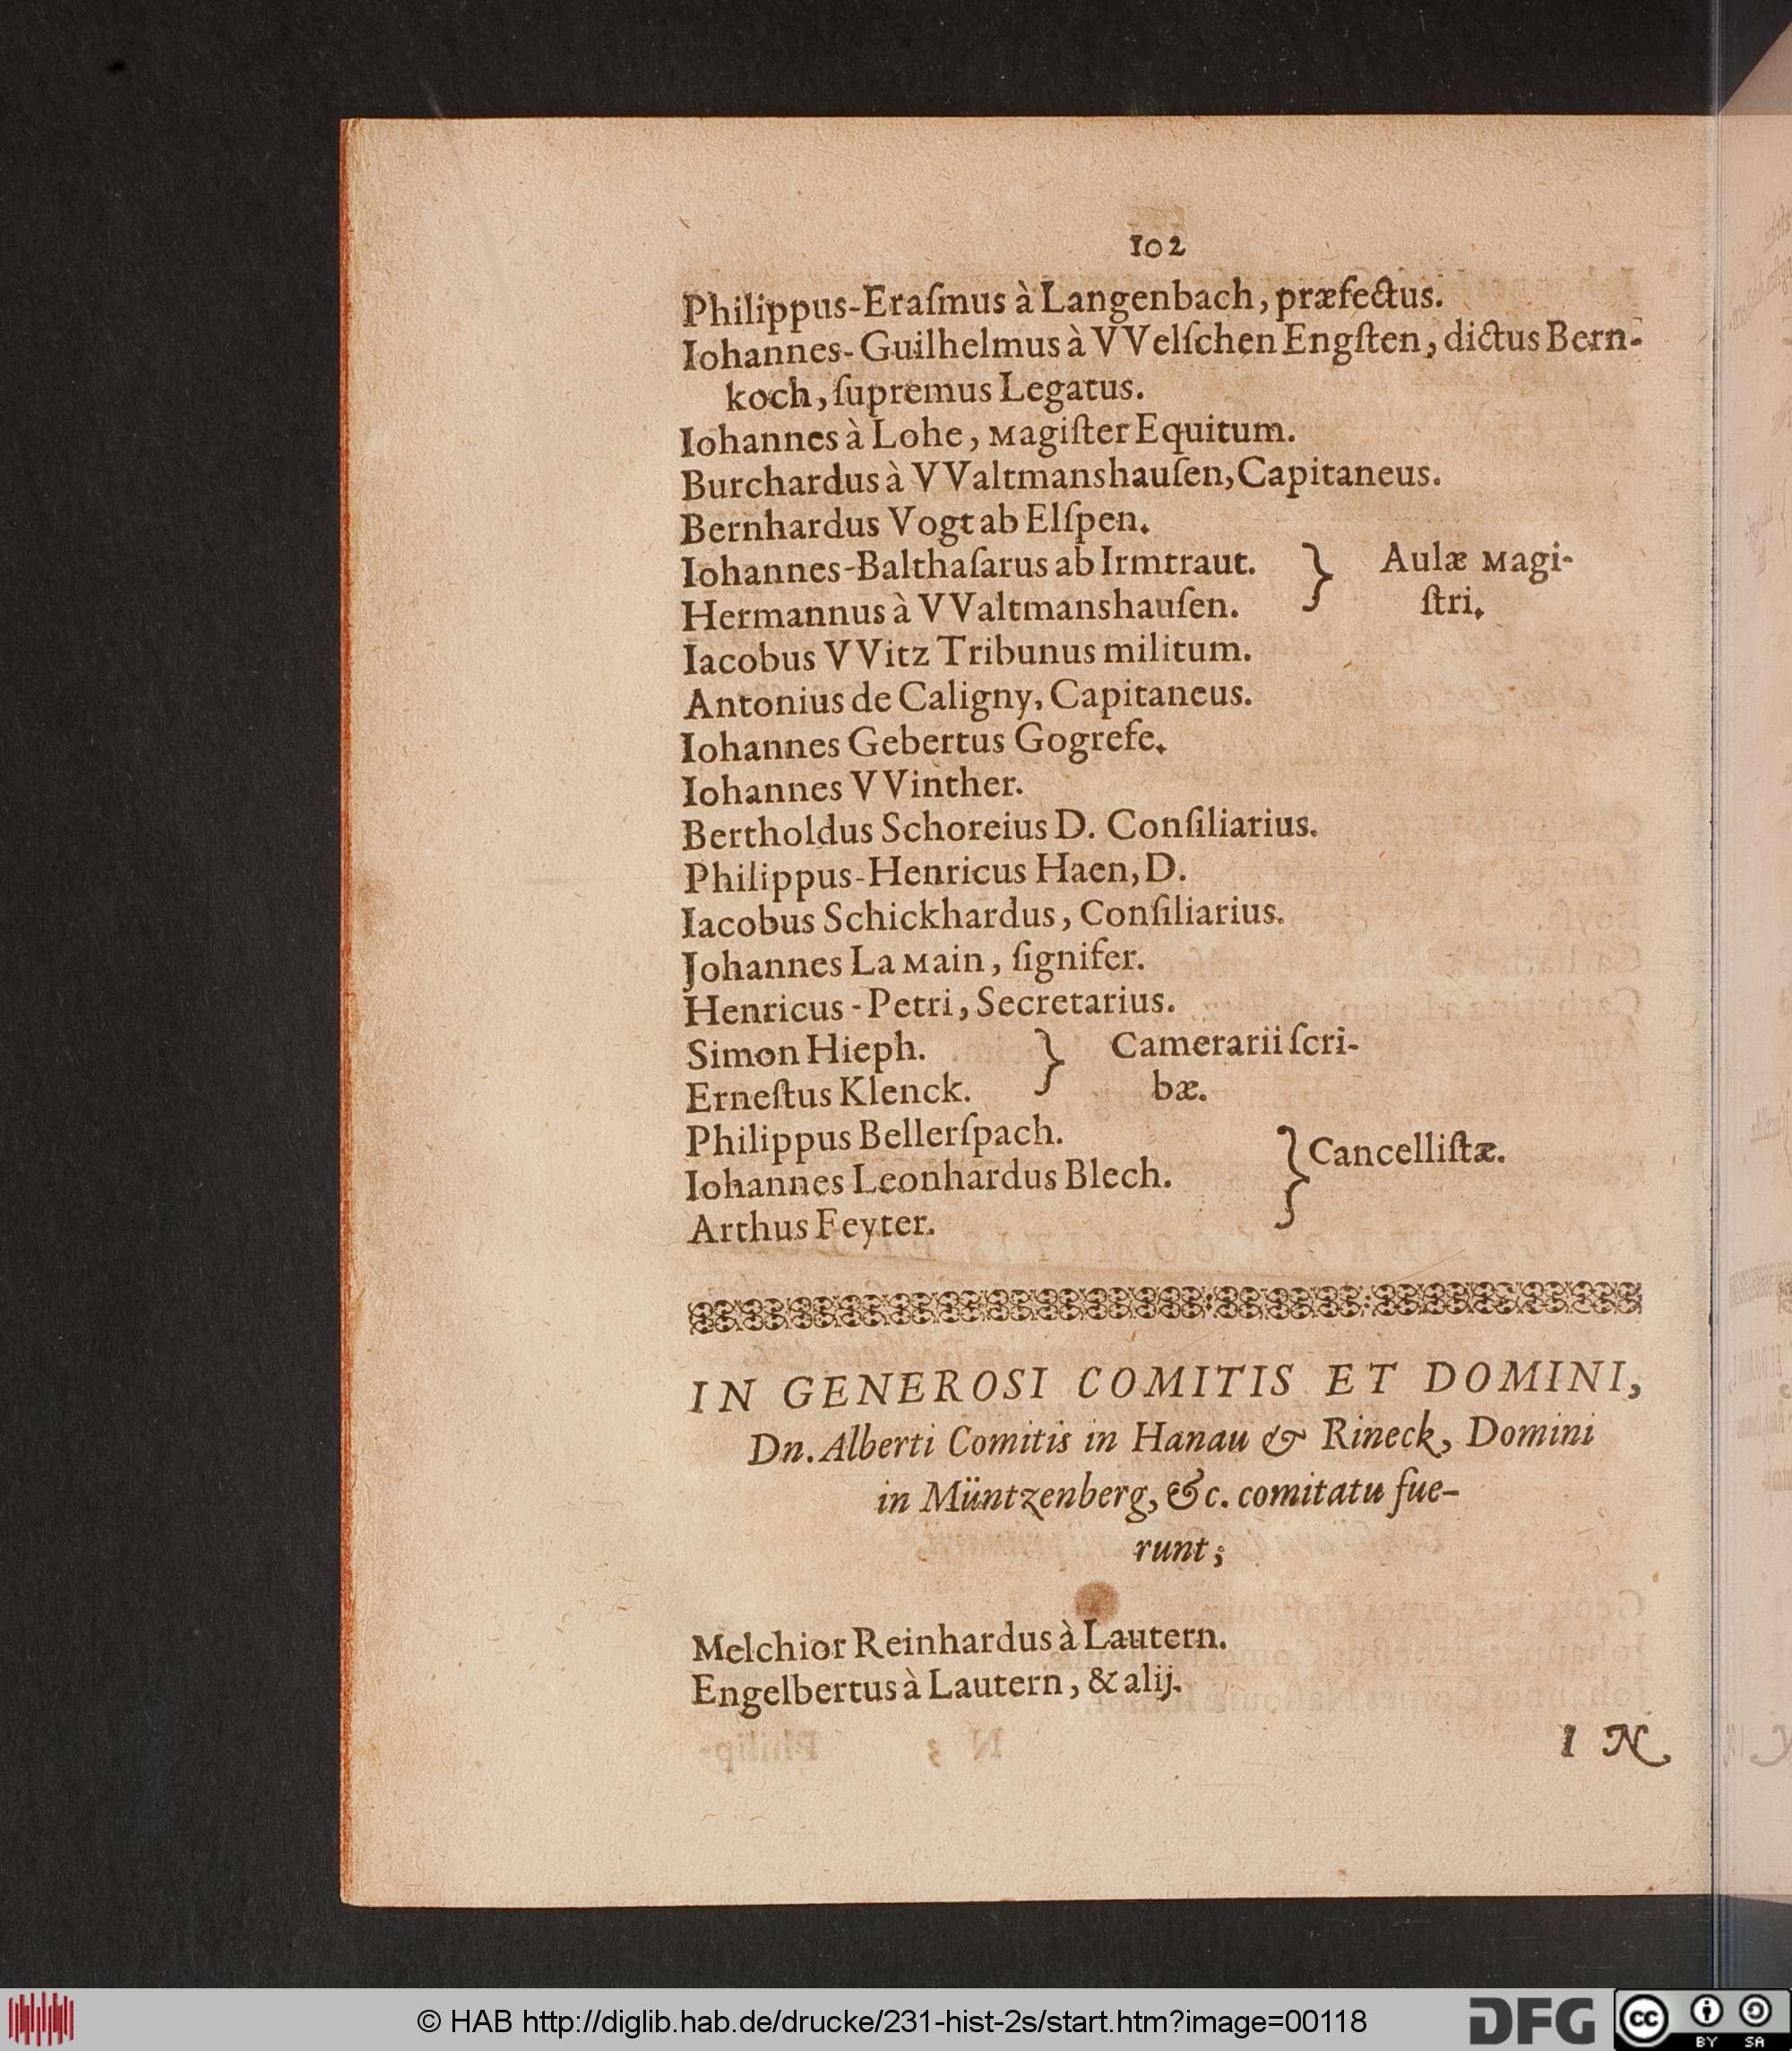 102
Philippus-Eraſmus à Langenbach, præfectus.
Iohannes-Guilhelmus à VVelſchen Engſten, dictus Bern-
koch, ſupremus Legatus.
Iohannes à Lohe, Magiſter Equitum.
Burchardus à VValtmanshauſen, Capitaneus.
Bernhardus Vogt ab Elſpen.
Iohannes-Balthaſarus ab Irmtraut. } Aulæ Magi-
Hermannus à VValtmanshauſen. ſtri.
Iacobus VVitz Tribunus militum.
Antonius de Caligny, Capitaneus.
Iohannes Gebertus Gogrefe.
Iohannes VVinther.
Bertholdus Schoreius D. Conſiliarius.
Philippus-Henricus Haen, D.
Iacobus Schickhardus, Conſiliarius.
Johannes La Main, ſignifer.
Henricus-Petri, Secretarius.
Simon Hieph. } Camerarii ſcri-
Erneſtus Klenck. bæ.
Philippus Bellerſpach.
Iohannes Leonhardus Blech. } Cancelliſtæ.
Arthus Feyter.
IN GENEROSI COMITIS ET DOMINI,
Dn. Alberti Comitis in Hanau & Rineck, Domini
in Müntzenberg, &c. comitatu fue-
runt;
Melchior Reinhardus à Lautern.
Engelbertus à Lautern, & alij.
I N
© HAB http://diglib.hab.de/drucke/231-hist-2s/start.htm?image=00118
DFG
cc BY SA